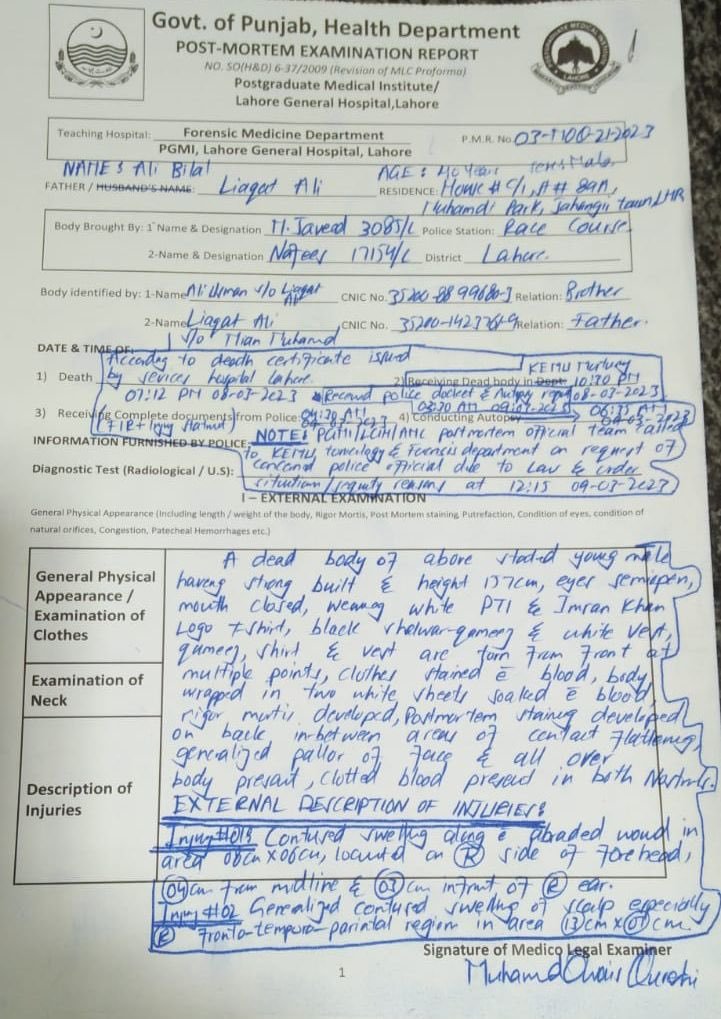 Govt. of Punjab, Health Department
POST-MORTEM EXAMINATION REPORT
NO. SO(H&D) 6-37/2009 (Revision of MLC Proforma)
Postgraduate Medical Institute/
Lahore General Hospital,Lahore
Teaching Hospital: Forensic Medicine Department
PGMI, Lahore General Hospital, Lahore
P.M.R. No. 03-1100-21-2023
NAME: Ali Bilal AGE: 40 Years Male
FATHER / HUSBAND'S NAME: Liaqat Ali RESIDENCE: House # C/1, # 8AA,
Muhamdi Park, Jahangir town, LHR
Body Brought By: 1 Name & Designation M. Javeed 3085/C Police Station: Race Course
2-Name & Designation Nafees 17154/C District Lahore.
Body identified by: 1-Name Ali Usman s/o Liaqat Ali CNIC No. 35200-8899680-3 Relation: Brother
2-Name Liaqat Ali CNIC No. Relation: Father.
s/o Mian Muhamd
DATE & TIME OF:
According to death certificate issued
by Sevices hospital Lahore.
1) Death 07:12 PM 08-03-2023
2) Receiving Dead body in Dept: KEMU Mortuary 10:30 PM 08-03-2023
Receaved police docket & Autopsy 03:30 AM 09-03-2023
3) Receiving Complete documents from Police: 04:30 AM
(FIR + Injury )
4) Conducting Autopsy 06:35 AM
INFORMATION FURNISHED BY POLICE:
NOTE: PGMI/LGH/AMC postmortem official team called
to KEMU, & forensis department on request of
Diagnostic Test (Radiological / U.S):
concerned police official due to Law & order
situation / reasons at 12:15 09-03-2023
I – EXTERNAL EXAMINATION
General Physical Appearance (Including length / weight of the body, Rigor Mortis, Post Mortem staining, Putrefaction, Condition of eyes, condition of
natural orifices, Congestion, Patecheal Hemorrhages etc.)
General Physical
Appearance /
Examination of
Clothes
Examination of
Neck
Description of
Injuries
A dead body of above stated young male
haveng strong built & height 177cm, eyes semiopen,
mouth closed, wearing white PTI & Imran Khan
Logo t-shirt, black shalwar-qameez & white vest,
qameez, shirt & vest are torn from front at
multiple points, clothes stained c̄ blood, body
wrapped in two white sheets soaked c̄ blood,
rigor mortis developed, Postmortem staining developed
on back in-between areas of contact flattening,
generalized pallor of face & all over
body present, clotted blood present in both Nostrils.
EXTERNAL DESCRIPTION OF INJURIES:
Injury #01: Contused swelling along c̄ abraded wound in
area 06cm x 06cm, located on (R) side of forehead,
04cm from midline & 03cm infront of (R) ear.
Injury #02 Generalized contused swelling of scalp especially
(R) Fronto-temporo-parietal region in area 13cm x 07cm.
Signature of Medico Legal Examiner
1